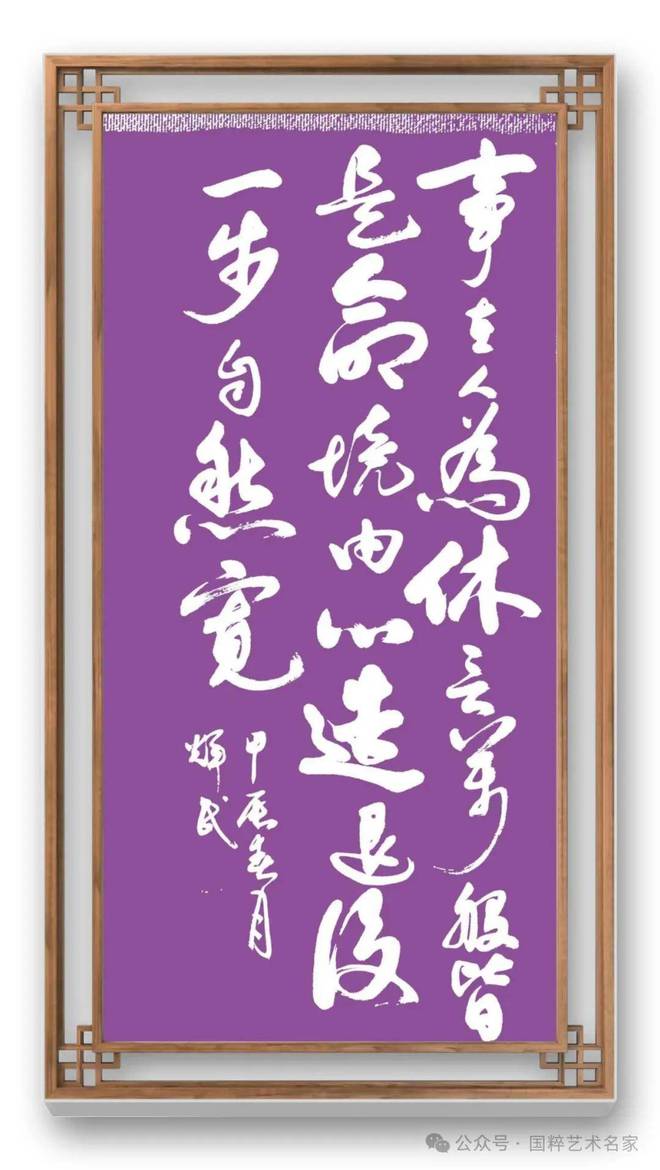 事在人為休言萬般皆
是命境由心造退後
一步自然寬
甲辰春月
炳民
公众号·国粹艺术名家